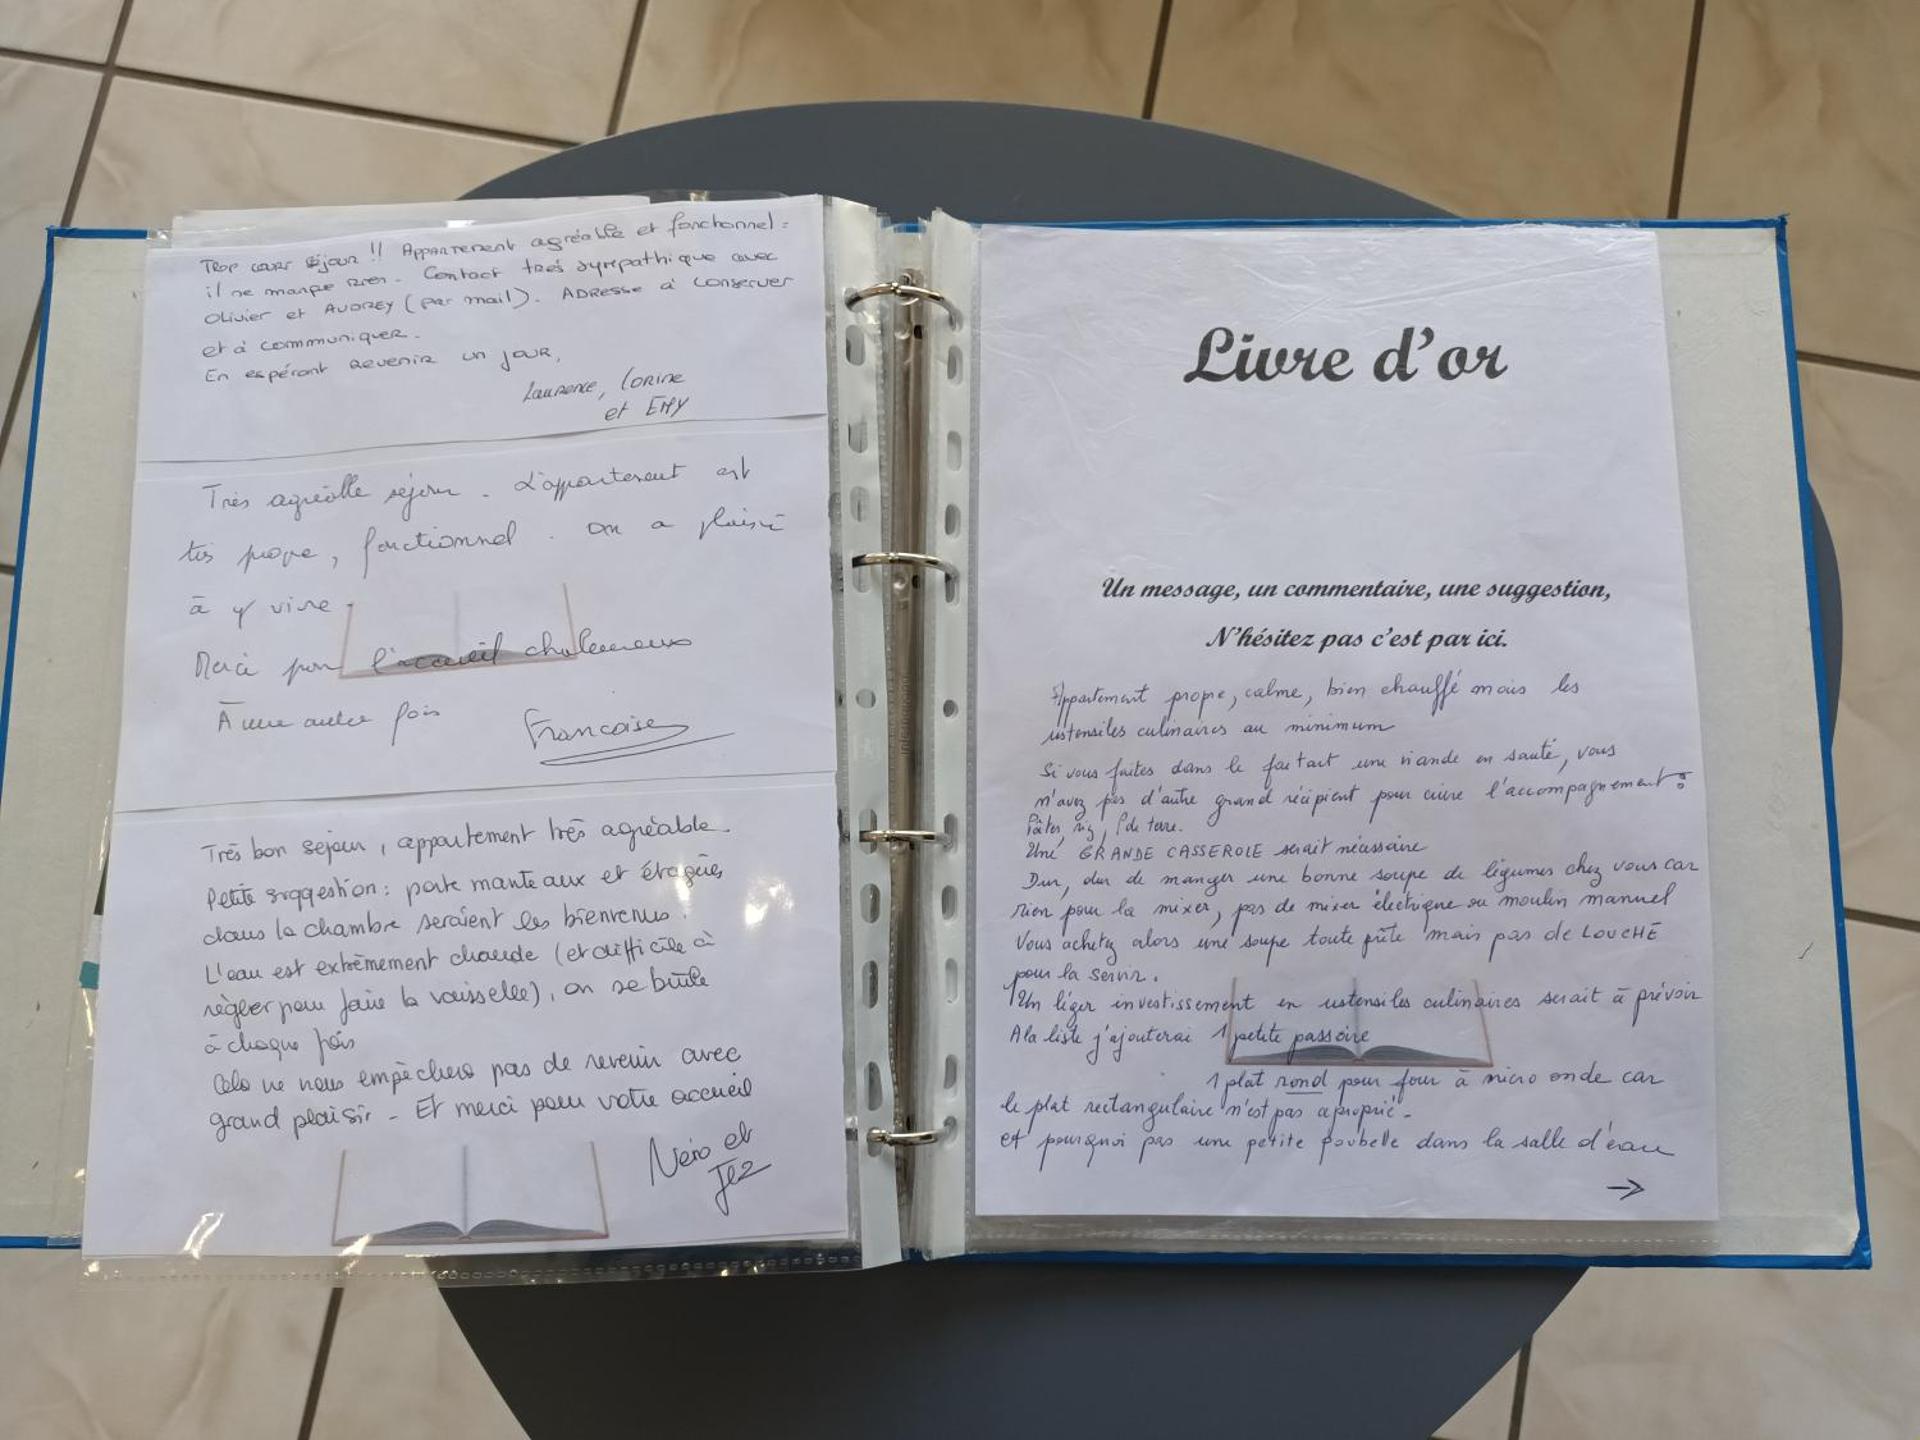 Trop court séjour !! Appartement agréable et fonctionnel :
il ne manque rien. Contact très sympathique avec
Olivier et AUDREY (par mail). ADRESSE à conserver
et à communiquer.
En espérant revenir un jour,
Laurence, Lorine
et EMY
Très agréable séjour. L'appartement est
très propre, fonctionnel. On a plaisir
à y vivre.
Merci pour l'accueil chaleureux
À une autre fois
Françoise
Très bon séjour, appartement très agréable.
Petite suggestion : porte manteaux et étagères
dans la chambre seraient les bienvenus.
L'eau est extrêmement chaude (et difficile à
règler pour faire la vaisselle), on se brûle
à chaque fois
Cela ne nous empêchera pas de revenir avec
grand plaisir - Et merci pour votre accueil
et
Livre d'or
Un message, un commentaire, une suggestion,
N'hésitez pas c'est par ici.
Appartement propre, calme, bien chauffé mais les
ustensiles culinaires au minimum
Si vous faites dans le faitout une viande en sauté, vous
n'avez pas d'autre grand récipient pour cuire l'accompagnement :
Pâtes, riz, P de terre.
Une GRANDE CASSEROLE serait nécessaire
Dur, dur de manger une bonne soupe de légumes chez vous car
rien pour la mixer, pas de mixer électrique ou moulin manuel
Vous achetez alors une soupe toute prête mais pas de LOUCHE
pour la servir.
Un léger investissement en ustensiles culinaires serait à prévoir
A la liste j'ajouterai 1 petite passoire
1 plat rond pour four à micro onde car
le plat rectangulaire n'est pas aproprié -
et pourquoi pas une petite poubelle dans la salle d'eau
→